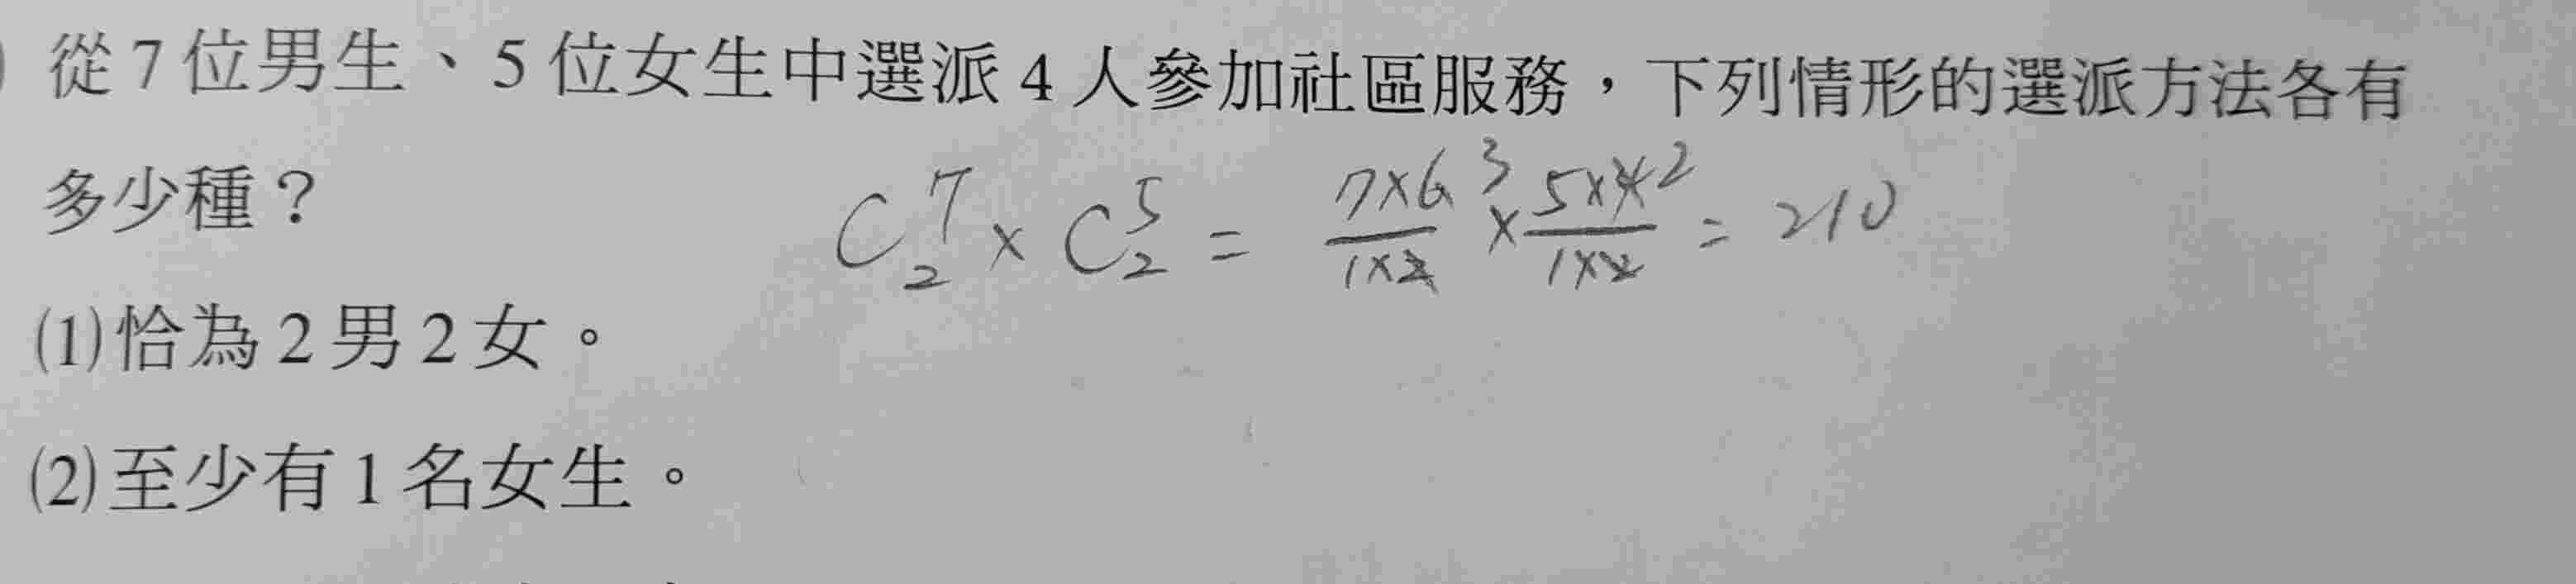 從7位男生、5位女生中選派4人參加社區服務，下列情形的選派方法各有
多少種？
C⁷₂ × C⁵₂ = 7×6/1×2 3 × 5×4/1×2 2 = 210
(1)恰為2男2女。
(2)至少有1名女生。